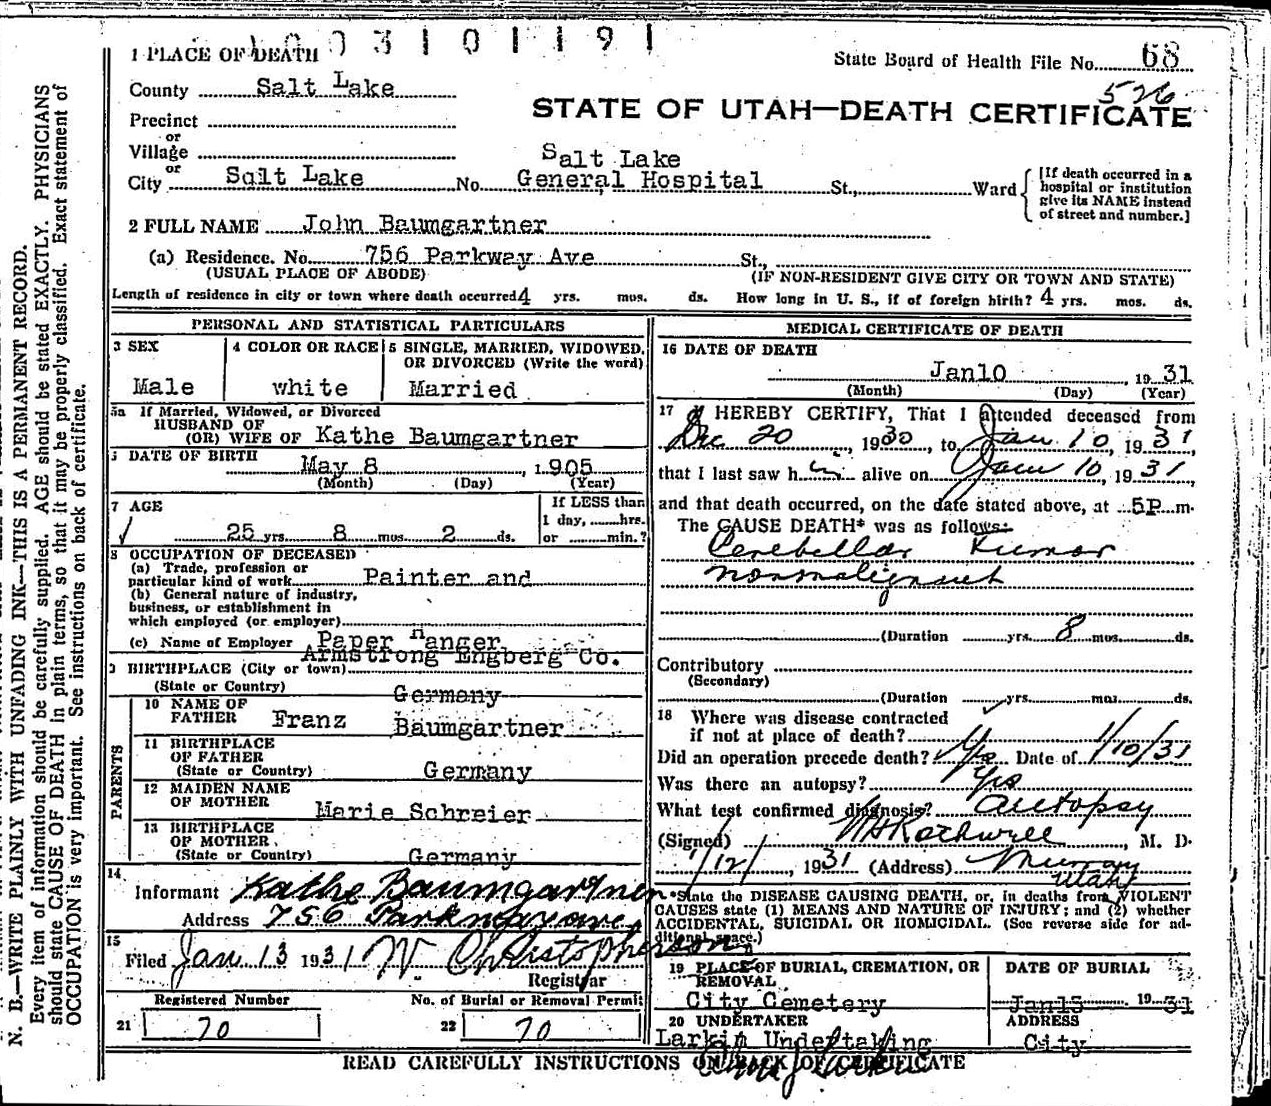 1003101191
1 PLACE OF DEATH
State Board of Health File No. 68
526
County Salt Lake
STATE OF UTAH—DEATH CERTIFICATE
Precinct
or
Village
or
City Salt Lake No. Salt Lake General Hospital St., Ward
[If death occurred in a
hospital or institution
give its NAME instead
of street and number.]
2 FULL NAME John Baumgartner
(a) Residence. No. 756 Parkway Ave St.,
(USUAL PLACE OF ABODE) (IF NON-RESIDENT GIVE CITY OR TOWN AND STATE)
Length of residence in city or town where death occurred 4 yrs. mos. ds. How long in U. S., if of foreign birth? 4 yrs. mos. ds.
PERSONAL AND STATISTICAL PARTICULARS
3 SEX
Male
4 COLOR OR RACE
white
5 SINGLE, MARRIED, WIDOWED,
OR DIVORCED (Write the word)
Married
5a If Married, Widowed, or Divorced
HUSBAND OF
(OR) WIFE OF Kathe Baumgartner
DATE OF BIRTH
May 8, 1905
(Month) (Day) (Year)
7 AGE
25 yrs. 8 mos. 2 ds.
If LESS than
1 day, hrs.
or min.?
8 OCCUPATION OF DECEASED
(a) Trade, profession or
particular kind of work Painter and
(b) General nature of industry,
business, or establishment in
which employed (or employer)
Paper Hanger
(c) Name of Employer Armstrong Engberg Co.
BIRTHPLACE (City or town)
(State or Country) Germany
PARENTS
10 NAME OF
FATHER Franz Baumgartner
11 BIRTHPLACE
OF FATHER
(State or Country) Germany
12 MAIDEN NAME
OF MOTHER Marie Schreier
13 BIRTHPLACE
OF MOTHER
(State or Country) Germany
14
Informant Kathe Baumgartner
Address 756 Parkway ave.
15
Filed Jan 13 1931 W Christopherson
Registrar
Registered Number
21 70
No. of Burial or Removal Permit
22 70
MEDICAL CERTIFICATE OF DEATH
16 DATE OF DEATH
Jan 10, 1931
(Month) (Day) (Year)
17 I HEREBY CERTIFY, That I attended deceased from
Dec 20, 1930, to Jan 10, 1931,
that I last saw him alive on Jan 10, 1931,
and that death occurred, on the date stated above, at 5P m.
The CAUSE DEATH* was as follows:
Cerebellar tumor
nonmalignant
(Duration yrs. 8 mos. ds.
Contributory
(Secondary)
(Duration yrs. mos. ds.
18 Where was disease contracted
if not at place of death?
Did an operation precede death? Yes Date of 1/10/31
Was there an autopsy? Yes
What test confirmed diagnosis? autopsy
(Signed) Rothwell, M. D.
1/12/, 1931 (Address) Murray
Utah
*State the DISEASE CAUSING DEATH, or, in deaths from VIOLENT
CAUSES state (1) MEANS AND NATURE OF INJURY; and (2) whether
ACCIDENTAL, SUICIDAL OR HOMICIDAL. (See reverse side for ad-
ditional space.)
19 PLACE OF BURIAL, CREMATION, OR
REMOVAL
City Cemetery
DATE OF BURIAL
Jan 15 1931
20 UNDERTAKER
Larkin Undertaking
ADDRESS
City
READ CAREFULLY INSTRUCTIONS ON BACK OF CERTIFICATE
N. B.—WRITE PLAINLY WITH UNFADING INK—THIS IS A PERMANENT RECORD.
Every item of information should be carefully supplied. AGE should be stated EXACTLY. PHYSICIANS
should state CAUSE OF DEATH in plain terms, so that it may be properly classified. Exact statement of
OCCUPATION is very important. See instructions on back of certificate.